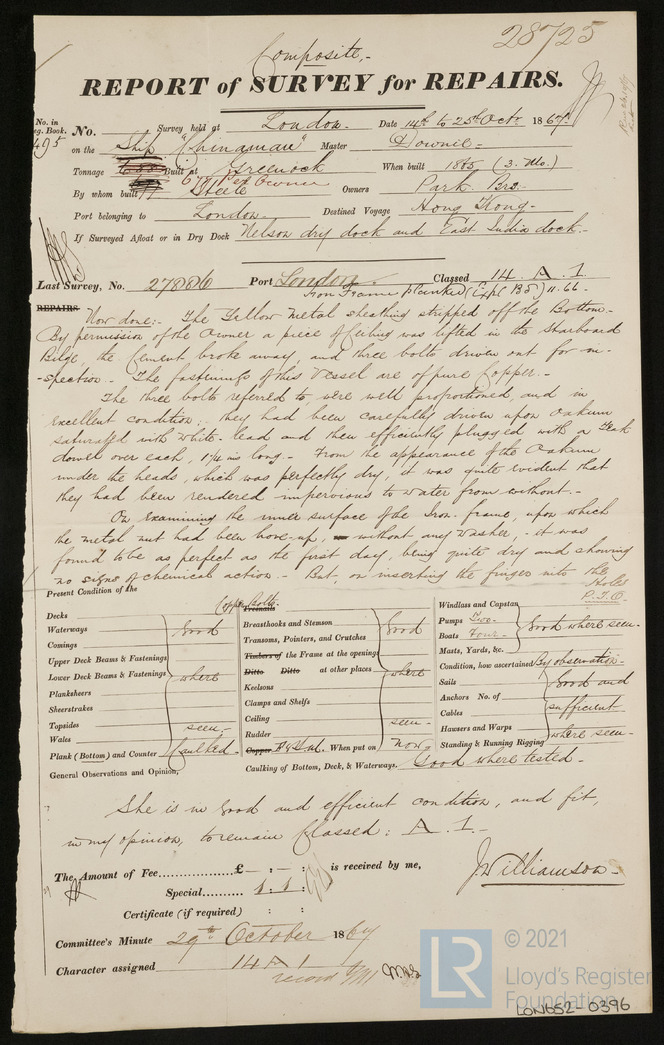 28725
Composite,-
REPORT of SURVEY for REPAIRS.
No. in
Reg. Book.
495
No. Survey held at London- Date 14th to 25th Oct. 1867.
on the Ship "Chinaman" Master Downie-
Tonnage Built at Greenock When built 1865 (3. Mo.)
By whom built Steele Owners Park Bros.
Port belonging to London- Destined Voyage Hong Kong-
If Surveyed Afloat or in Dry Dock Nelson dry dock and East India dock.-
Last Survey, No. 27886 Port London. Classed 14 A 1
Iron Frame planked (Exp. B.S) 11.66.-
REPAIRS.
Now done:- The Yellow Metal sheathing stripped off the Bottom-
By permission of the Owner a piece of Ceiling was lifted in the Starboard
Bilge, the Cement broke away, and three bolts driven out for in-
-spection- The fastenings of this Vessel are of pure Copper.-
The three bolts referred to were well proportioned, and in
excellent condition; they had been carefully driven upon Oakum
saturated with White-lead and then efficiently plugged with a Teak
dowel over each, 1¼ ins long- From the appearance of the Oakum
under the heads, which was perfectly dry, it was quite evident that
they had been rendered impervious to water from without.-
On examining the inner surface of the Iron-frame, upon which
the metal nut had been hove-up, without any washer,- it was
found to be as perfect as the first day, being quite dry and showing
no signs of chemical action- But, on inserting the finger into the
Holes
P.T.O.
Present Condition of the
Decks
Waterways
Comings
Upper Deck Beams & Fastenings
Lower Deck Beams & Fastenings
Planksheers
Sheerstrakes
Topsides
Wales
Plank (Bottom) and Counter
Good
where
seen-
Caulked-
Copper Bolts-
Treenails
Breasthooks and Stemson
Transoms, Pointers, and Crutches
Timbers of the Frame at the openings
Ditto Ditto at other places
Keelsons
Clamps and Shelfs
Ceiling
Rudder
Copper Y. Metl. When put on now
Good
where
seen-
Windlass and Capstan
Pumps Two-
Boats Four-
Masts, Yards, &c.
Good where seen-
Condition, how ascertained By observation-
Sails
Anchors No. of
Cables
Hawsers and Warps
Standing & Running Rigging
Good and
sufficient
where seen-
General Observations and Opinion,
Caulking of Bottom, Deck, & Waterways. Good where tested-
She is in Good and efficient condition, and fit,
in my opinion, to remain Classed: A 1.-
The Amount of Fee £ - : - : is received by me,
Special 1 . 1 :
Certificate (if required) : :
J. Williamson-
Committee's Minute 29th October 1867
Character assigned 14 A 1
record
© 2021
LR
Lloyd's Register
Foundation
LON652-0396